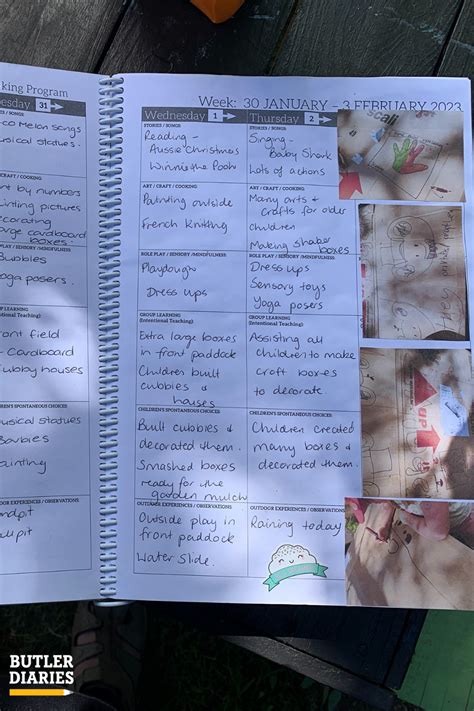 king Program
Week: 30 JANUARY – 3 FEBRUARY 2023
esday 31
co Melon songs
usical statues.
ART / CRAFT / COOKING
int by numbers
inting pictures
ecorating
arge cardboard
boxes.
ROLE PLAY / SENSORY / MINDFULNESS
Bubbles
oga posers.
GROUP LEARNING
(Intentional Teaching)
ront field
- Cardboard
ubby houses
CHILDREN'S SPONTANEOUS CHOICES
usical statues
ainting
OUTDOOR EXPERIENCES / OBSERVATIONS
Wednesday 1
STORIES / SONGS
Reading -
Aussie Christmas
Winnie the Pooh
ART / CRAFT / COOKING
Painting outside
French Knitting
ROLE PLAY / SENSORY /MINDFULNESS
Playdough
Dress ups
GROUP LEARNING
(Intentional Teaching)
Extra large boxes
in front paddock
Children built
cubbies &
houses
CHILDREN'S SPONTANEOUS CHOICES
Built cubbies &
decorated them.
Smashed boxes
ready for the
garden mulch
OUTDOOR EXPERIENCES / OBSERVATIONS
Outside play in
front paddock
Water Slide.
Thursday 2
STORIES / SONGS
Singing -
Baby Shark
Lots of actions
ART / CRAFT / COOKING
Many arts &
crafts for older
children
Making shaker
boxes
ROLE PLAY / SENSORY /MINDFULNESS
Dress ups
Sensory toys
Yoga posers
GROUP LEARNING
(Intentional Teaching)
Assisting all
children to make
craft boxes
to decorate.
CHILDREN'S SPONTANEOUS CHOICES
Children created
many boxes &
decorated them.
OUTDOOR EXPERIENCES / OBSERVATIONS
Raining today
UP
BUTLER
DIARIES